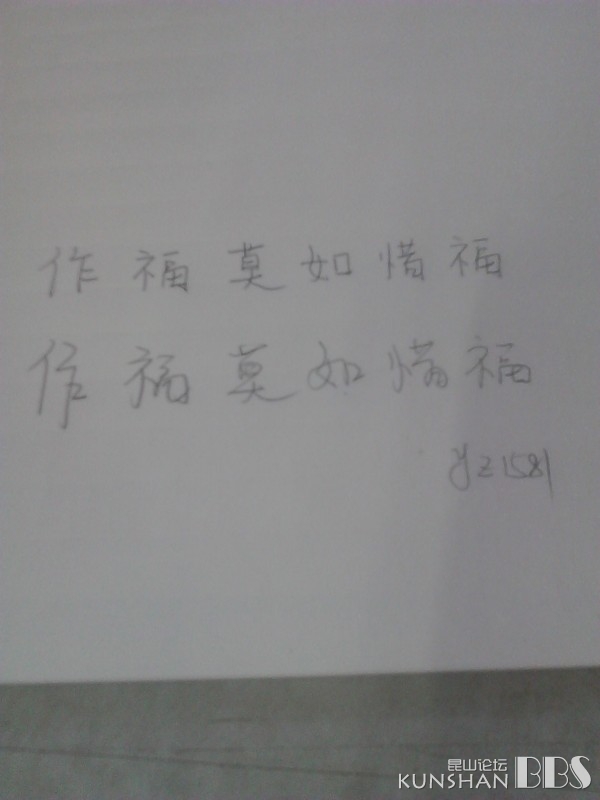 作福莫如惜福
作福莫如惜福
yz1581
昆山论坛
KUNSHAN BBS